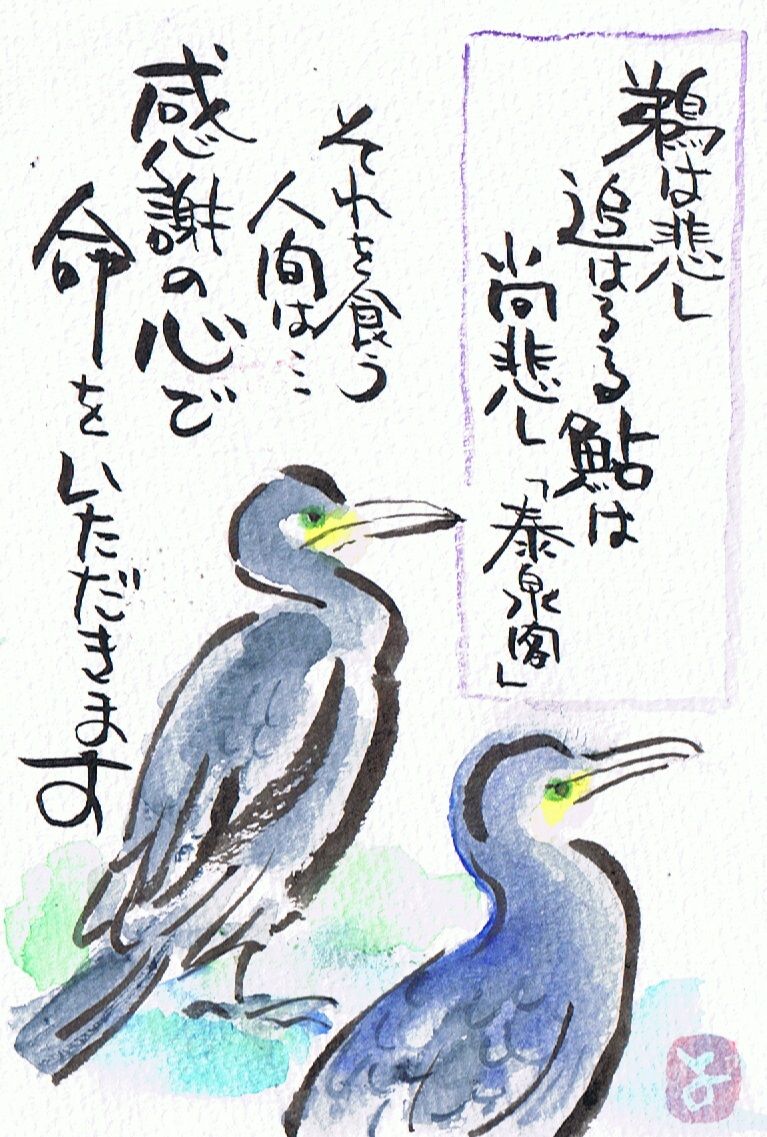 鵜は悲し
追はるる鮎は
尚悲し「泰泉客」
それを食う
人間は…
感謝の心で
命をいただきます
と